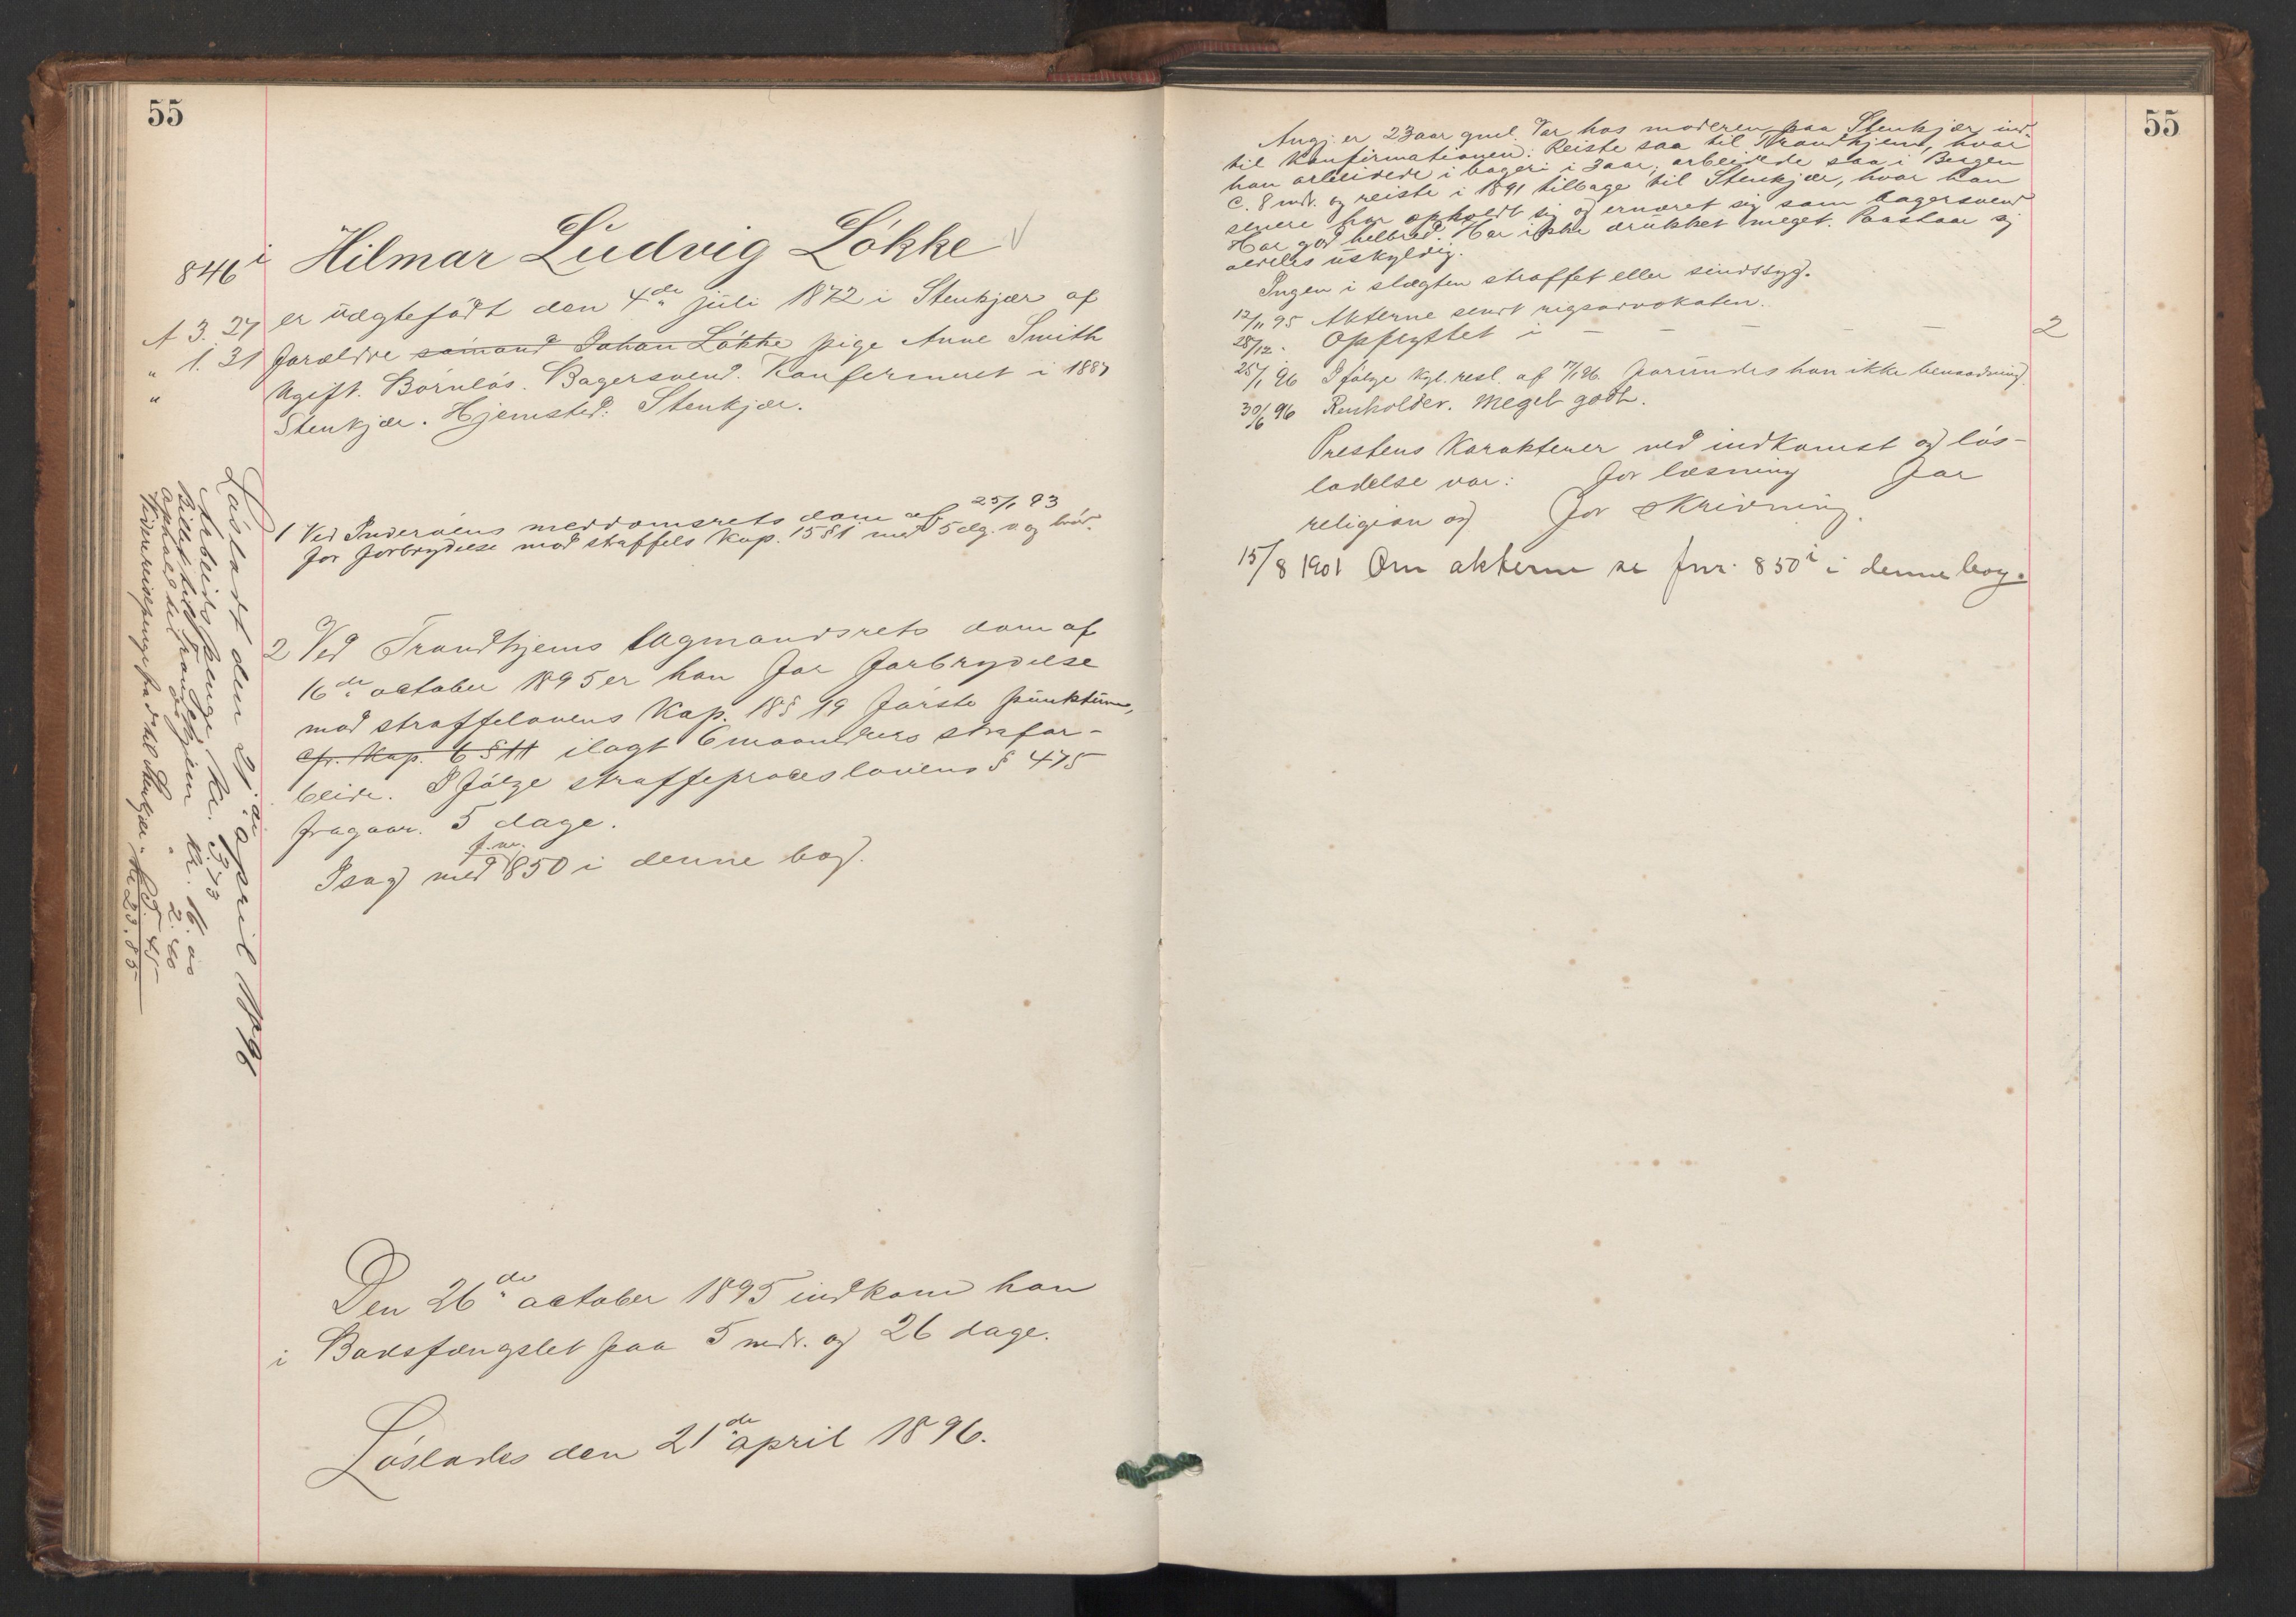 55
846 i
Hilmar Ludvig Løkke
A 3. 27
" 1. 31
"
er uægtefødt den 4de juli 1872 i Stenkjær af
forældre sømand Johan Løkke pige Anne Smith
Ugift. Børnløs. Bagersvend. Konfirmeret i 1887
Stenkjær. Hjemsted: Stenkjær.
1 Ved Inderøens meddomsrets dom af 25/1 93
for forbrydelse mod straffels Kap. 15 § 1 med 5 dg. v og brød.
2 Ved Trondhjems lagmandsrets dom af
16de october 1895 er han for forbrydelse
mod straffelovens Kap. 18 § 19 første punktum,
cfr. Kap. 6 § 11 ilagt 6 maaneders strafar-
beide. I følge straffeproceslovens § 475
fragaar. 5 dage.
I sag med f.nr. 850 i denne bog.
Løsladt den 21de april 1896
Arbeidspenge kr. 3.73
Billet til Trondhjem kr. 16.00
ophold til do " 2.40
Videre reisepenge fra do til Stenkjær " 5.45
kr 23.85
Den 26de october 1895 indkom han
i Bodsfængslet paa 5 mdr. og 26 dage.
Løslades den 21de april 1896.
55
Angj. er 23 aar gml. Var hos moderen paa Stenkjær ind-
til Konfirmationen. Reiste saa til Trondhjem, hvor
han arbeidede i bageri i 3 aar, arbeidede saa i Bergen
c. 8 mdr. og reiste i 1891 tilbage til Stenkjær, hvor han
senere har opholdt sig og ernæret sig som bagersvend
Har god helbred. Har ikke drukket meget. Paastaar sig
aldeles uskyldig.
Ingen i slægten straffet eller sindssyg.
12/11 95 Akterne sendt rigsadvokaten.
28/12 - Opflyttet i — — — — — 2
25/1 96 I følge kgl. resl. af 17/1 96 forundes han ikke benaadning.
30/6 96 Renholder. Meget godt.
Prestens Karakterer ved indkomst og løs-
ladelse var: for læsning for
religion og for skrivning.
15/8 1901 Om akterne se fnr. 850 i i denne bog.